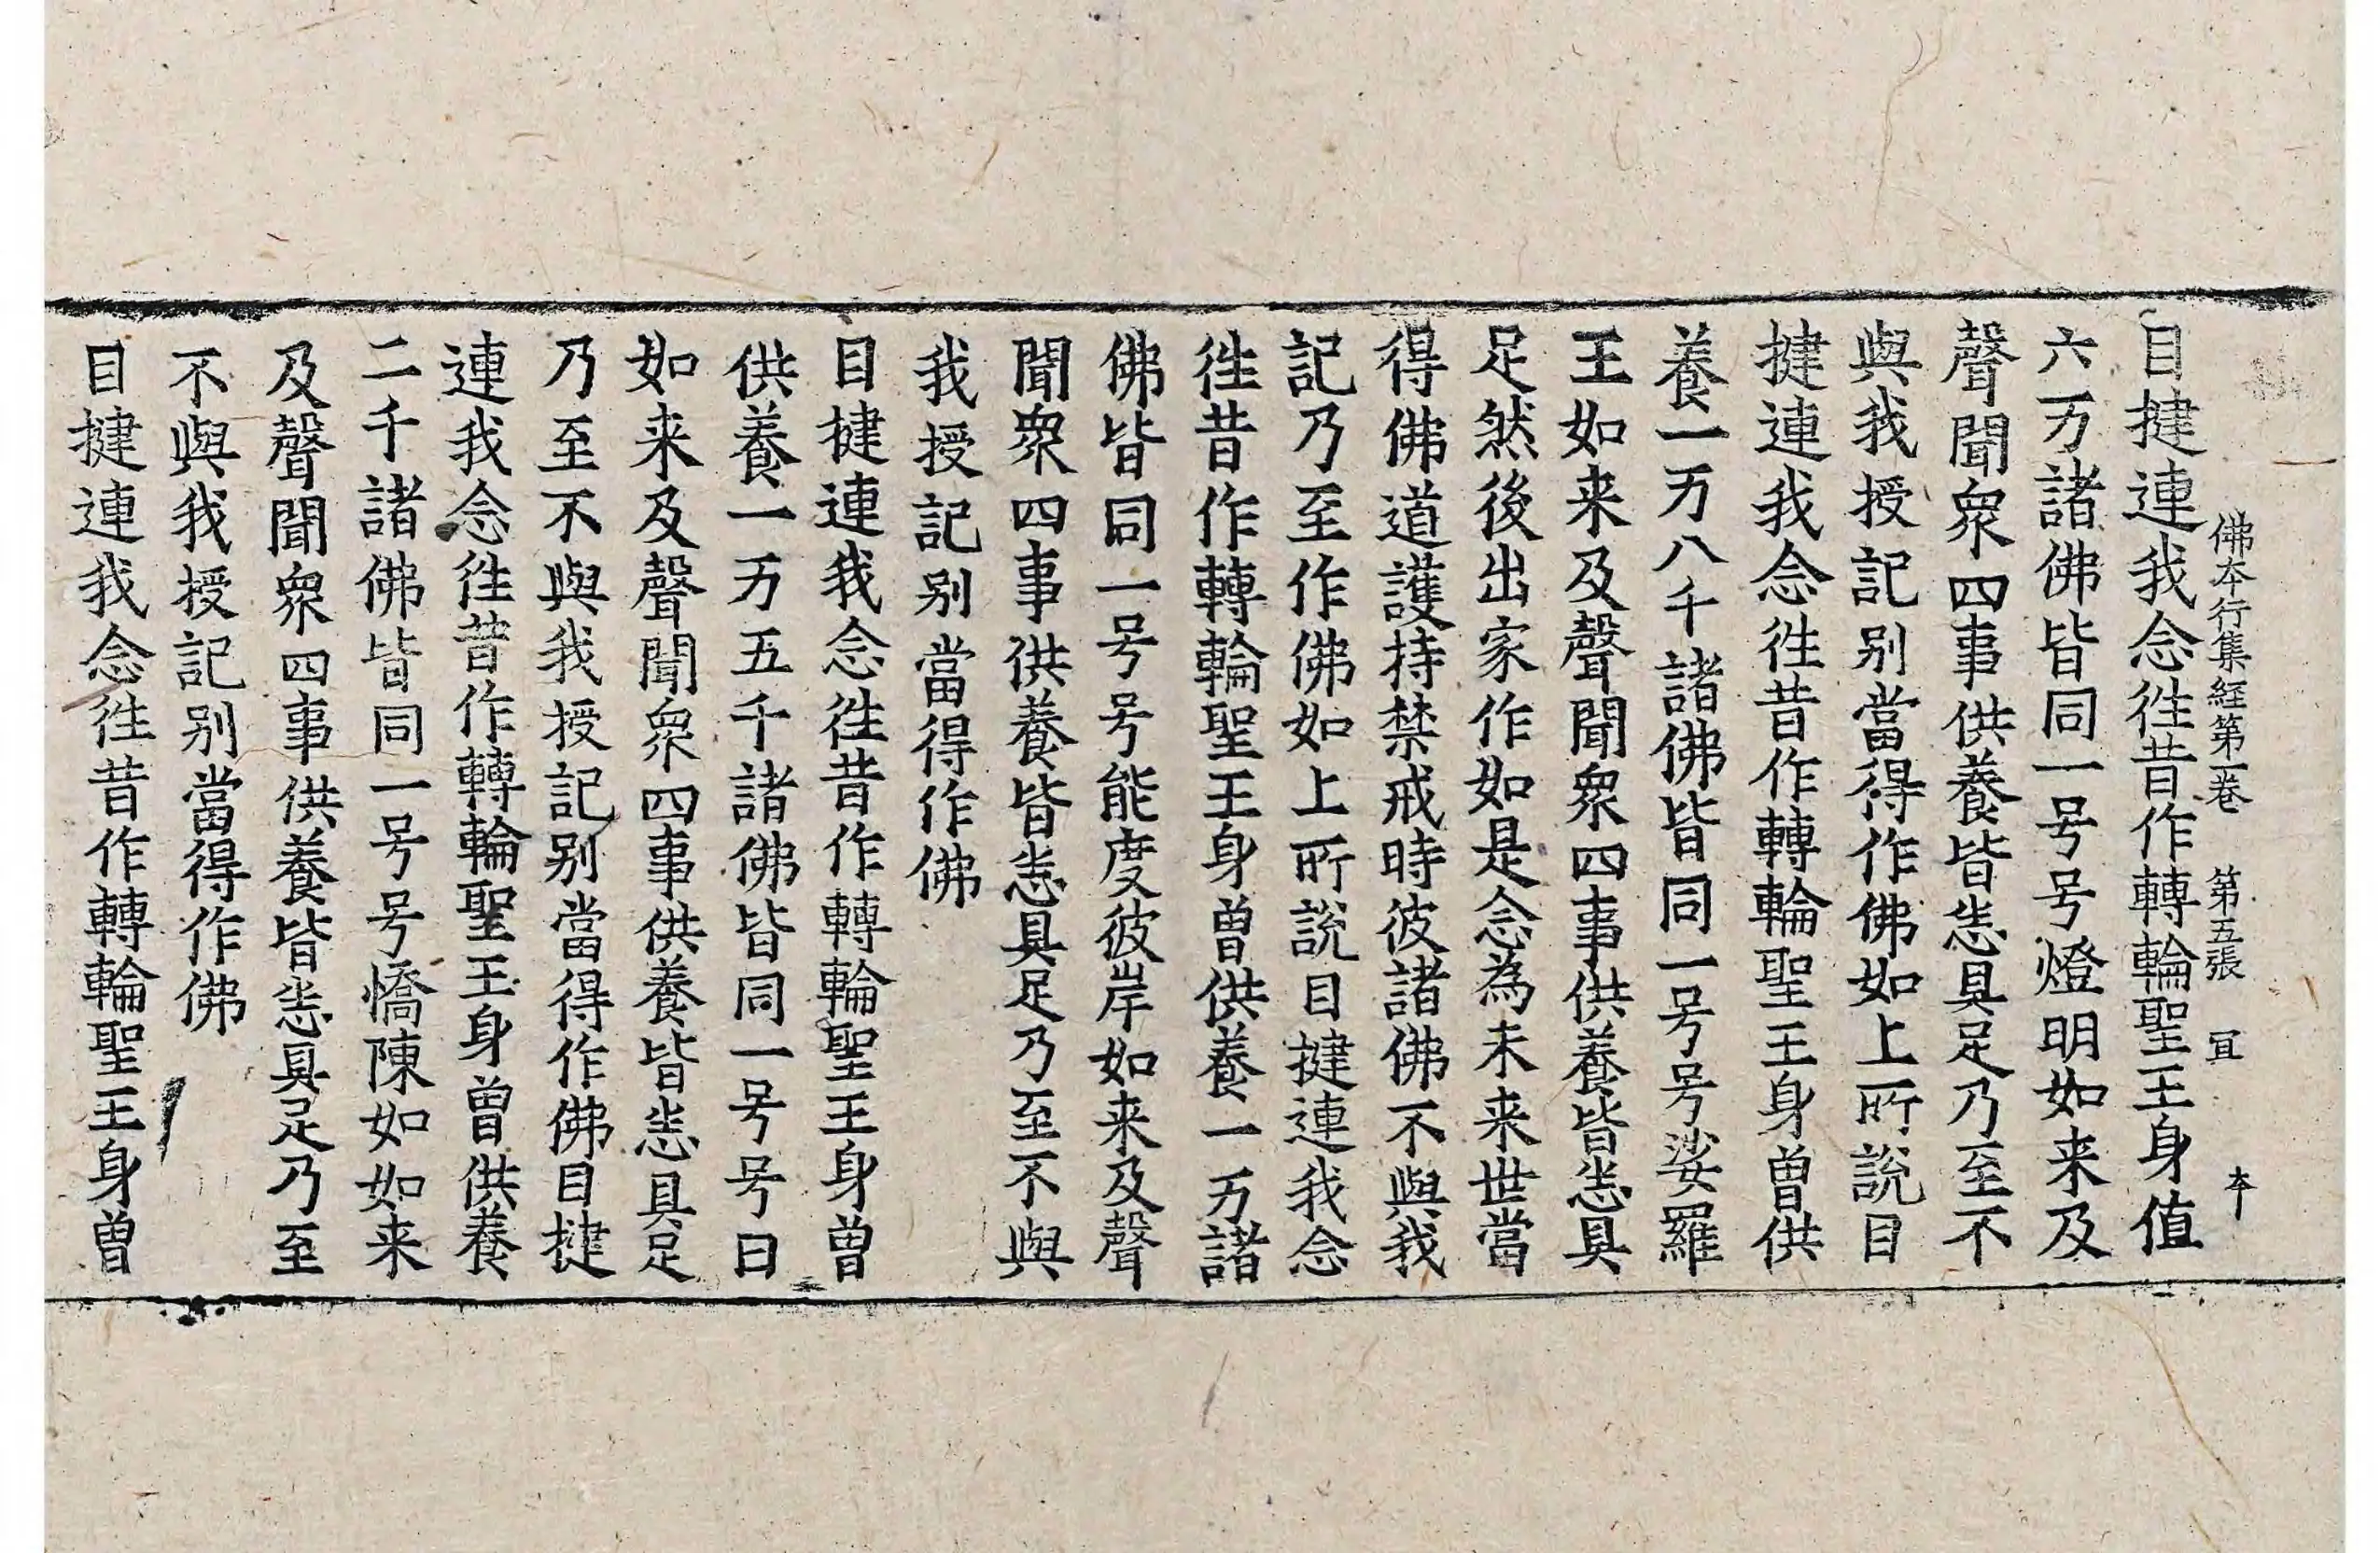 佛本行集經第一卷 第五張 冝 本
目揵連我念徃昔作轉輪聖王身值
六万諸佛皆同一号号燈明如来及
聲聞衆四事供養皆悉具足乃至不
與我授記别當得作佛如上所說目
揵連我念徃昔作轉輪聖王身曽供
養一万八千諸佛皆同一号号娑羅
王如来及聲聞衆四事供養皆悉具
足然後出家作如是念為未来世當
得佛道護持禁戒時彼諸佛不與我
記乃至作佛如上所說目揵連我念
徃昔作轉輪聖王身曽供養一万諸
佛皆同一号号能度彼岸如来及聲
聞衆四事供養皆悉具足乃至不與
我授記别當得作佛
目揵連我念徃昔作轉輪聖王身曽
供養一万五千諸佛皆同一号号日
如来及聲聞衆四事供養皆悉具足
乃至不與我授記别當得作佛目揵
連我念徃昔作轉輪聖王身曽供養
二千諸佛皆同一号号憍陳如如来
及聲聞衆四事供養皆悉具足乃至
不與我授記别當得作佛
目揵連我念徃昔作轉輪聖王身曽